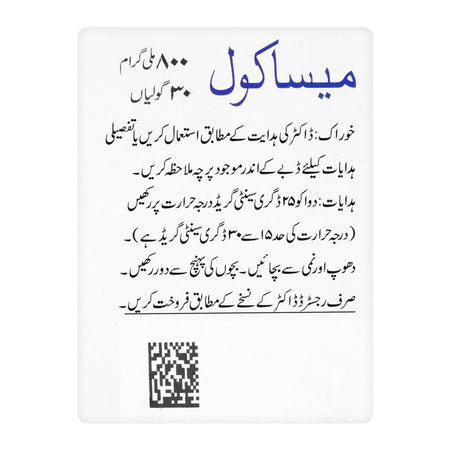 میساکول
۸۰۰ ملی گرام
۳۰ گولیاں
خوراک: ڈاکٹر کی ہدایت کے مطابق استعمال کریں یا تفصیلی
ہدایات کیلئے ڈبے کے اندر موجود پرچہ ملاحظہ کریں۔
ہدایات: دوا کو ۲۵ ڈگری سینٹی گریڈ درجہ حرارت پر رکھیں
(درجہ حرارت کی حد ۱۵ سے ۳۰ ڈگری سینٹی گریڈ ہے)۔
دھوپ اور نمی سے بچائیں۔ بچوں کی پہنچ سے دور رکھیں۔
صرف رجسٹرڈ ڈاکٹر کے نسخے کے مطابق فروخت کریں۔